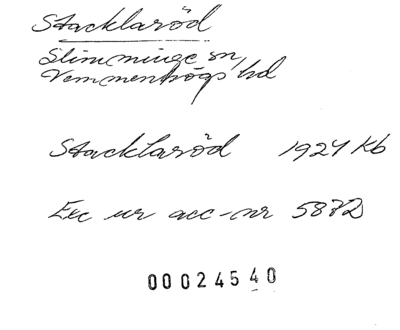 Stacklaröd
Slimminge sn,
Vemmenhögs hd
Stacklaröd 1927 Kb
Exc ur acc-nr 5872
00024540